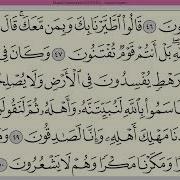 ونَ ٤٦ قَالُوا۟ ٱطَّيَّرْنَا بِكَ وَبِمَن مَّعَكَ ۚ قَا
هِ ۖ بَلْ أَنتُمْ قَوْمٌ تُفْتَنُونَ ٤٧ وَكَانَ فِى
رَهْطٍ يُفْسِدُونَ فِى ٱلْأَرْضِ وَلَا يُصْلِ
اسَمُوا۟ بِٱللَّهِ لَنُبَيِّتَنَّهُۥ وَأَهْلَهُۥ ثُمَّ لَنَقُولَ
نَا مَهْلِكَ أَهْلِهِۦ وَإِنَّا لَصَٰدِقُونَ ٤٩
وَمَكَرْنَا مَكْرًا وَهُمْ لَا يَشْعُرُونَ